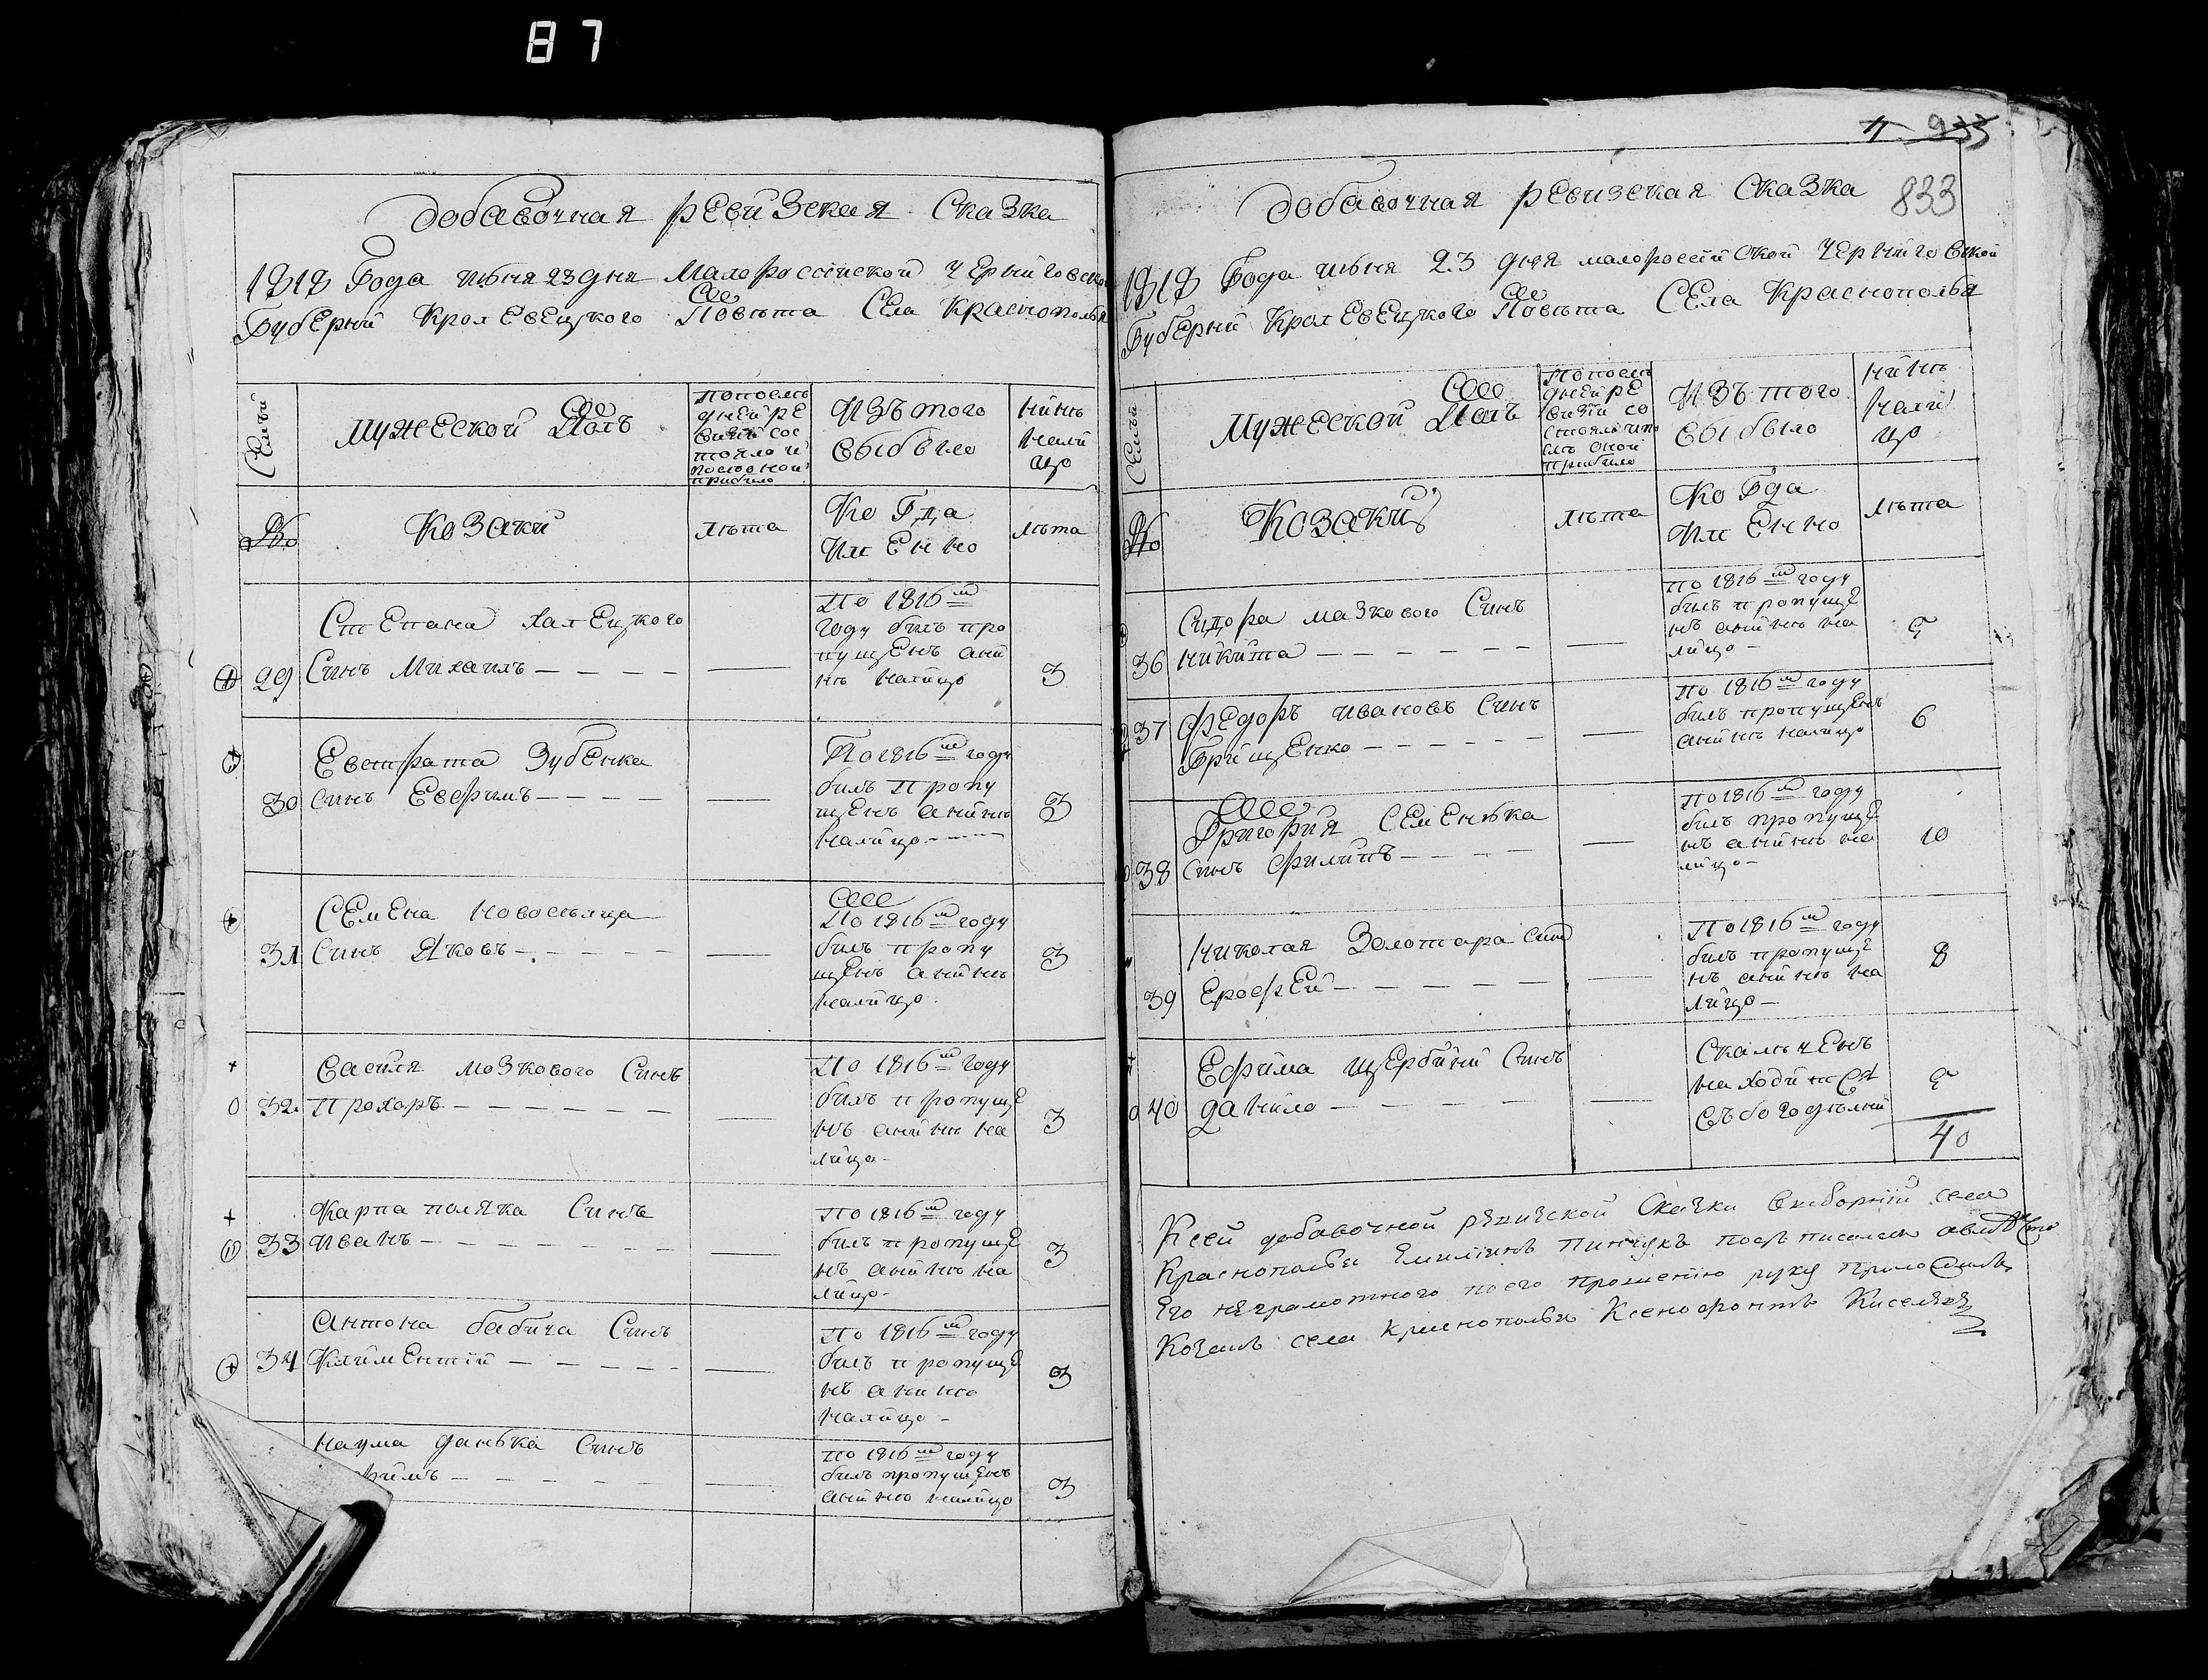 87
Добавочная ревизская Сказка
1818 Года июня 23 дня Малороссійской Черниговской
Губерніи Кролевецкого Повѣта Села Краснополья
Семьи
Мужеской Полъ
По послѣ
дней ре
визіи сос
тояло и
после оной
прибыло
Изъ того
выбыло
нинѣ
нали
цо
№
Козаки
лѣта
Когда
именно
лѣта
Степана Халецкого
29 Синъ Михаилъ
По 1816 м
году билъ про
пущенъ а ни
нѣ налицо
3
Евстрата Зубенка
30 синъ Ефимъ
По 1816 м году
билъ пропу
щенъ а нинѣ
налицо
3
Семена Новосельца
31 Синъ Яковъ
По 1816 м году
билъ пропу
щенъ а нинѣ
налицо
3
Василя Мозкового Синъ
32 Прохоръ
По 1816 м году
билъ пропуще
нъ а нинѣ на
лицо
3
Карпа Поляка Синъ
33 Иванъ
По 1816 м году
билъ пропуще
нъ а нинѣ на
лицо
3
Антона Бабича Синъ
34 Климентій
По 1816 м году
билъ пропуще
нъ а нинѣ
налицо
3
Наума Данька Синъ
по 1816 м году
билъ пропущенъ
а нинѣ налицо
3
833
Добавочная ревизская Сказка
1818 Года июня 23 дня малороссійской Черниговской
Губерніи Кролевецкого Повѣта Села Краснополья
Семьи
Мужеской Полъ
По послѣ
дней ре
визіи со
стояло и по
слѣ оной
прибыло
Изъ того
выбыло
нинѣ
нали
цо
№
Козаки
лѣта
Когда
именно
лѣта
Сидора Мазкового Синъ
36 Никита
по 1816 м году
билъ пропуще
нъ а нинѣ на
лицо
5
37 Федоръ Ивановъ Синъ
Грищенко
По 1816 м году
билъ пропущенъ
а нинѣ налицо
6
Григорія Семенька
38 синъ Филипъ
По 1816 м году
билъ пропуще
нъ а нинѣ на
лицо
10
Николая Золотара Синъ
39 Ерофей
По 1816 м году
билъ пропуще
нъ а нинѣ на
лицо
8
Ефима Щербини Синъ
40 Данило
Скалѣченъ
находится
въ богодѣлни
5
40
К сей добавочной ревиской Сказки Виборній села
Краснополья Емиліянъ Пинчукъ подписалса а вместо
Его неграмотного по его прошению руку приложилъ
Козакъ села Краснополья Ксенофонтъ Киселя